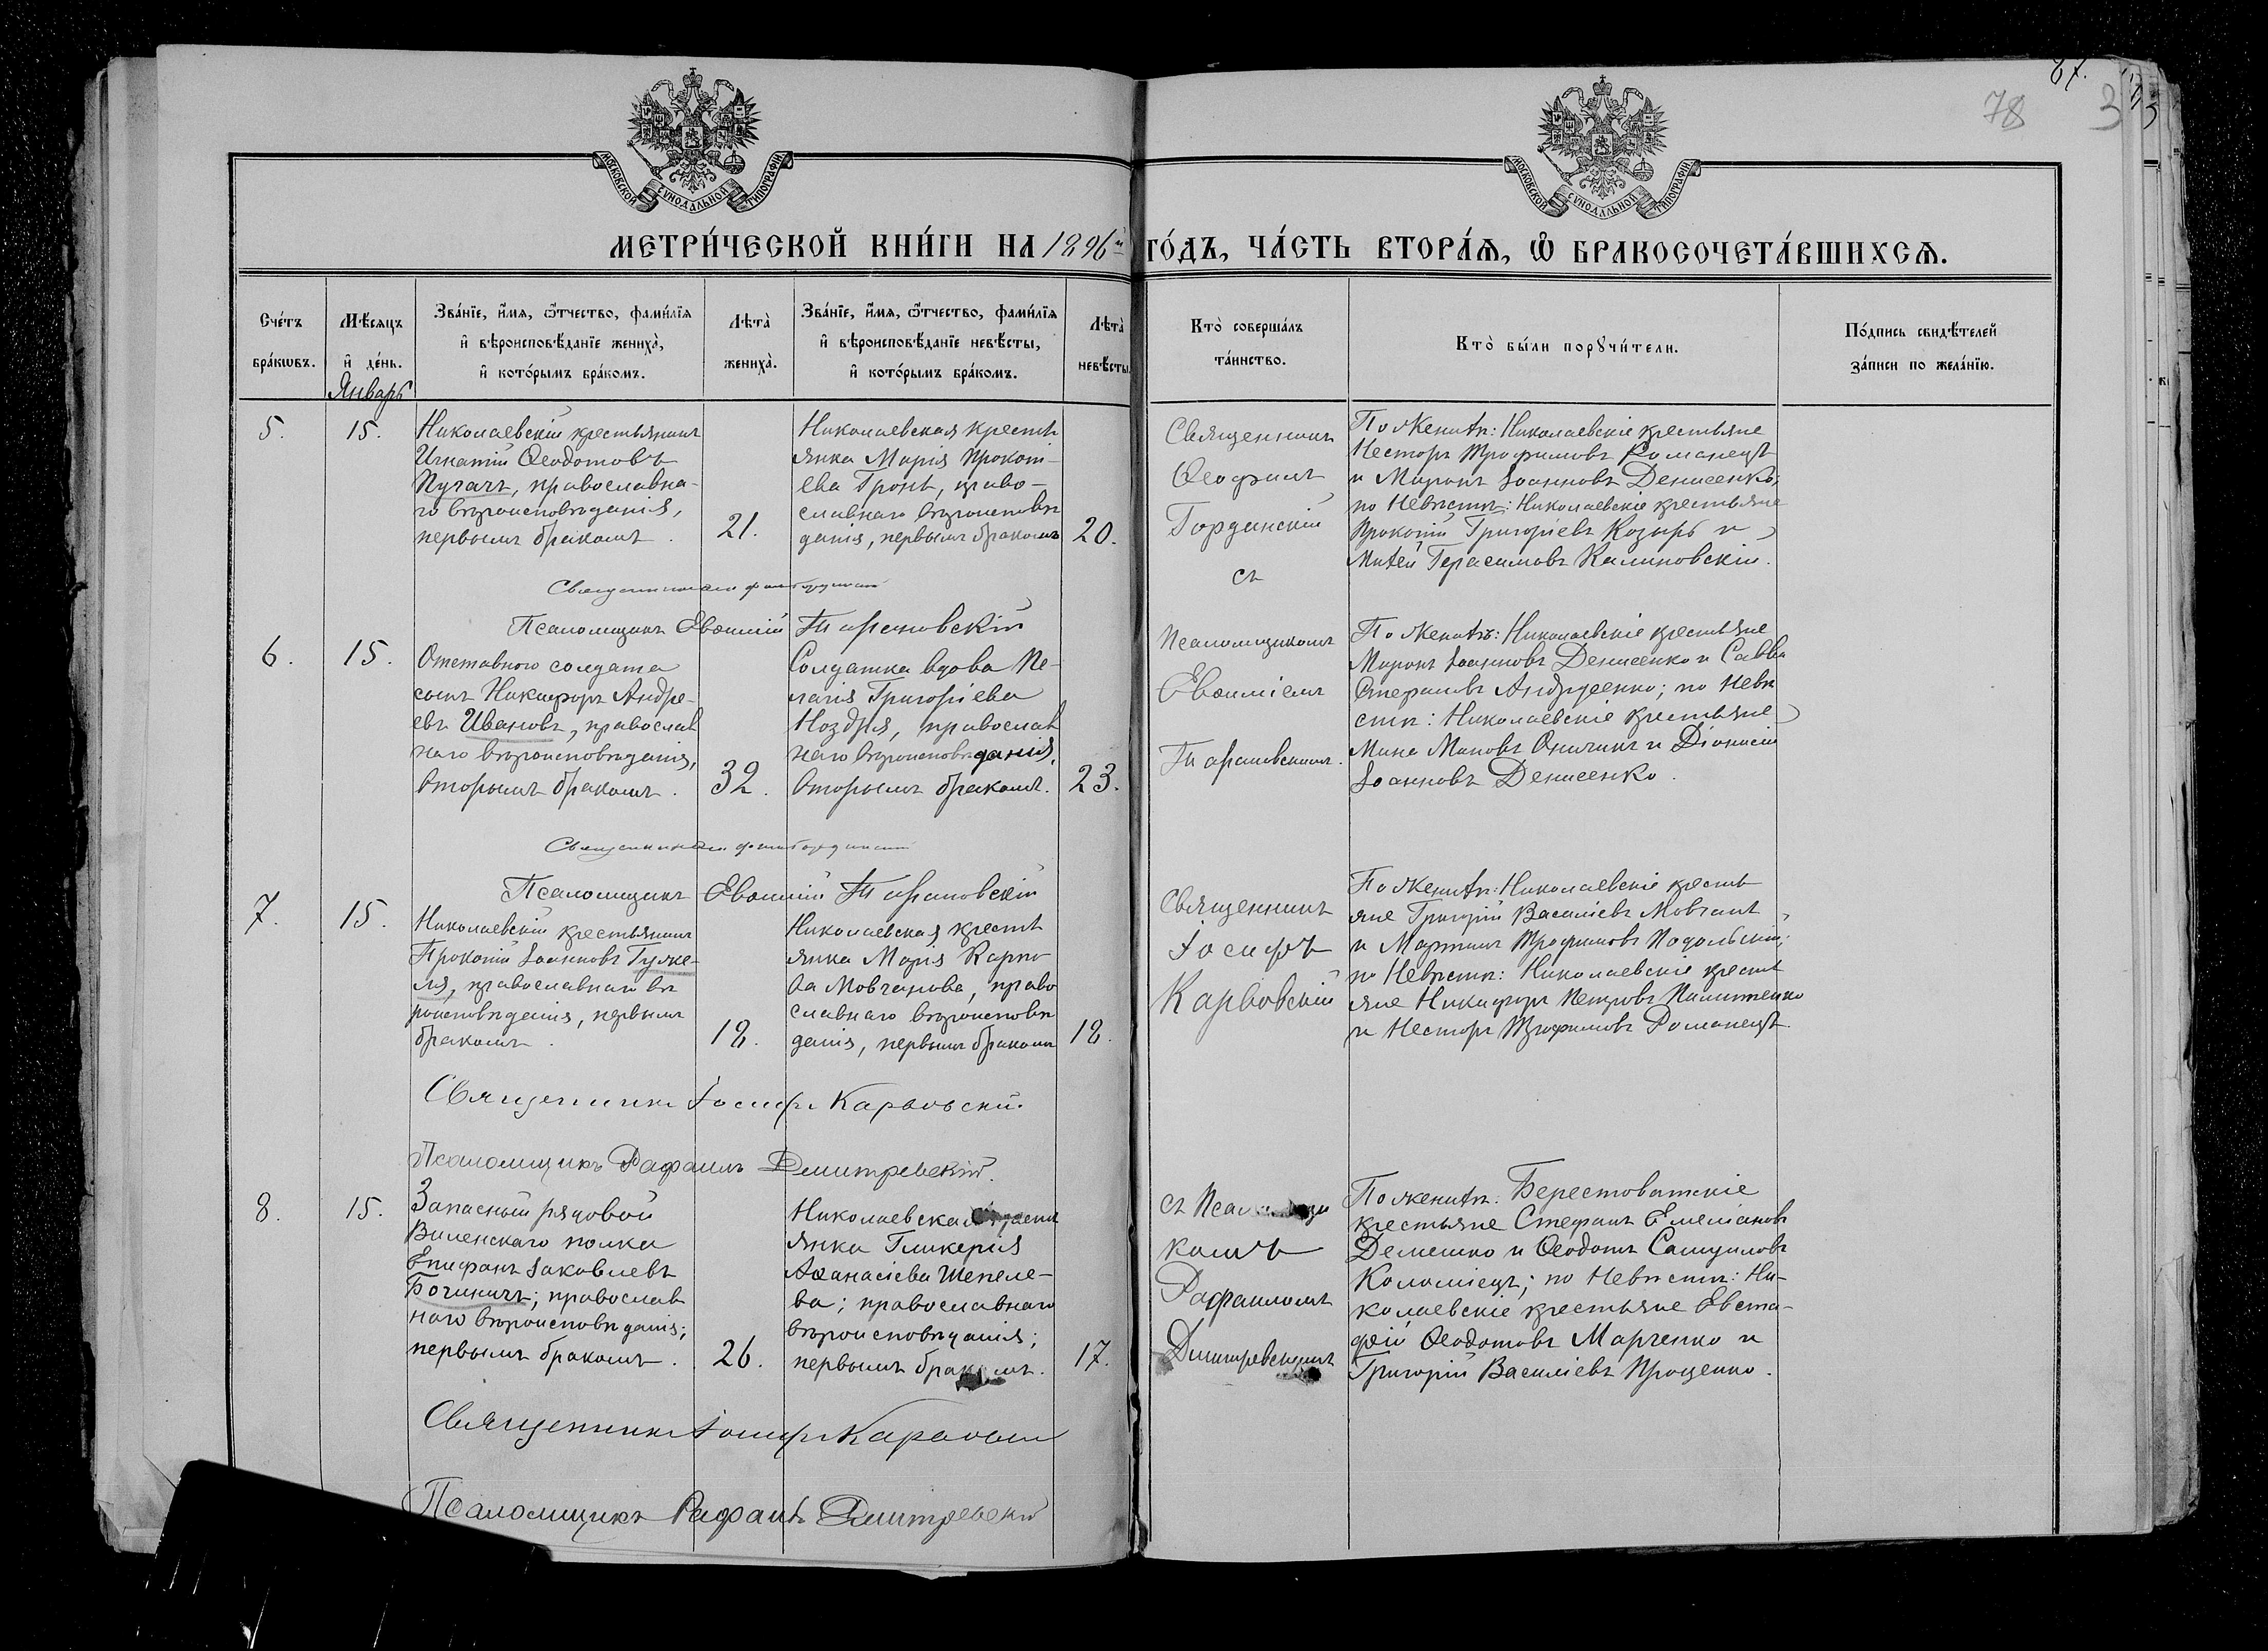 МОСКОВСКОЙ СѴНОДАЛЬНОЙ ТИПОГРАФІИ
МОСКОВСКОЙ СѴНОДАЛЬНОЙ ТИПОГРАФІИ
78
МЕТРИ́ЧЕСКОЙ КНИ́ГИ НА 1896й ГО́ДЪ, ЧА́СТЬ ВТОРА́Ѧ, Ѽ БРАКОСОЧЕТА́ВШИХСѦ.
Сче́тъ бра́кѡвъ.
Мѣ́сяцъ и҆ де́нь.
Зва́нїе, и҆́мя, ѻ҆́тчество, фами́лїя
и҆ вѣроисповѣ́данїе жениха̀,
и҆ кото́рымъ бра́комъ.
Лѣта̀ жениха̀.
Зва́нїе, и҆́мя, ѻ҆́тчество, фами́лїя
и҆ вѣроисповѣ́данїе невѣ́сты,
и҆ кото́рымъ бра́комъ.
Лѣта̀ невѣ́сты.
Кто̀ соверша́лъ
та́инство.
Кто̀ бы́ли порꙋчи́тели.
По́дпись свидѣ́телей
за́писи по жела́нїю.
Январь
5.
15.
Николаевскій крестьянинъ
Игнатій Ѳеодотовъ
Пугачъ, православна-
го вѣроисповѣданія,
первымъ бракомъ.
21.
Николаевская кресть
янка Марія Прокоп-
ева Гронь, право-
славнаго вѣроисповѣ
данія, первымъ бракомъ
20.
Священникъ
Ѳеофилъ
Гординскій
съ
По Женихѣ: Николаевскіе крестьяне
Несторъ Трофимовъ Романецъ
и Миронъ Іоанновъ Денисенко;
по Невѣстѣ: Николаевскіе крестьяне
Прокопій Григоріевъ Козырь и
Матѳей Герасимовъ Калиновскій.
Псаломщикъ Евѳимій Тарановскій
6.
15.
Отставного солдата
сынъ Никифоръ Андре-
евъ Ивановъ, православ
наго вѣроисповѣданія,
вторымъ бракомъ.
32.
Солдатка вдова Пе-
лагія Григоріева
Ноздря, православ
наго вѣроисповѣданія,
вторымъ бракомъ.
23.
Псаломщикомъ
Евѳиміемъ
Тарановскимъ.
По Женихѣ: Николаевскіе крестьяне
Миронъ Іоанновъ Денисенко и Савва
Стефановъ Андреенко; по Невѣ
стѣ: Николаевскіе крестьяне
Мина Миновъ и Діонисій
Іоанновъ Денисенко.
Псаломщикъ Евѳимій Тарановскій
7.
15.
Николаевскій крестьянинъ
Прокопій Іоанновъ Гуже-
ля, православнаго вѣ
роисповѣданія, первымъ
бракомъ.
18.
Николаевская кресть
янка Марія Карпо
ва Мовчанова, право
славнаго вѣроисповѣ
данія, первымъ бракомъ
18.
Священникъ
Іосифъ
Карвовскій
По Женихѣ: Николаевскіе кресть
яне Григорій Василіевъ Мовчанъ
и Мартинъ Трофимовъ Подольскій;
по Невѣстѣ: Николаевскіе кресть
яне Никифоръ Петровъ
и Несторъ Трофимовъ Романецъ.
Священникъ Іосифъ Карвовскій
Псаломщикъ Рафаилъ Дмитревскій.
8.
15.
Запасный рядовой
Виленскаго полка
Епифанъ Іаковлевъ
Бочиничъ; православ
наго вѣроисповѣданія;
первымъ бракомъ.
26.
Николаевская кресть
янка Гликерія
Аѳанасіева Шепеле-
ва; православнаго
вѣроисповѣданія;
первымъ бракомъ.
17.
съ Псаломщи
комъ
Рафаиломъ
Дмитревскимъ
По женихѣ: Берестоватскіе
крестьяне Стефанъ Емеліановъ
Демешко и Ѳеодотъ Самуиловъ
Коломіецъ; по Невѣстѣ: Ни-
колаевскіе крестьяне Евста-
фій Ѳеодотовъ Марченко и
Григорій Василіевъ Проценко.
Священникъ Іосифъ Карвовскій
Псаломщикъ Рафаилъ Дмитревскій